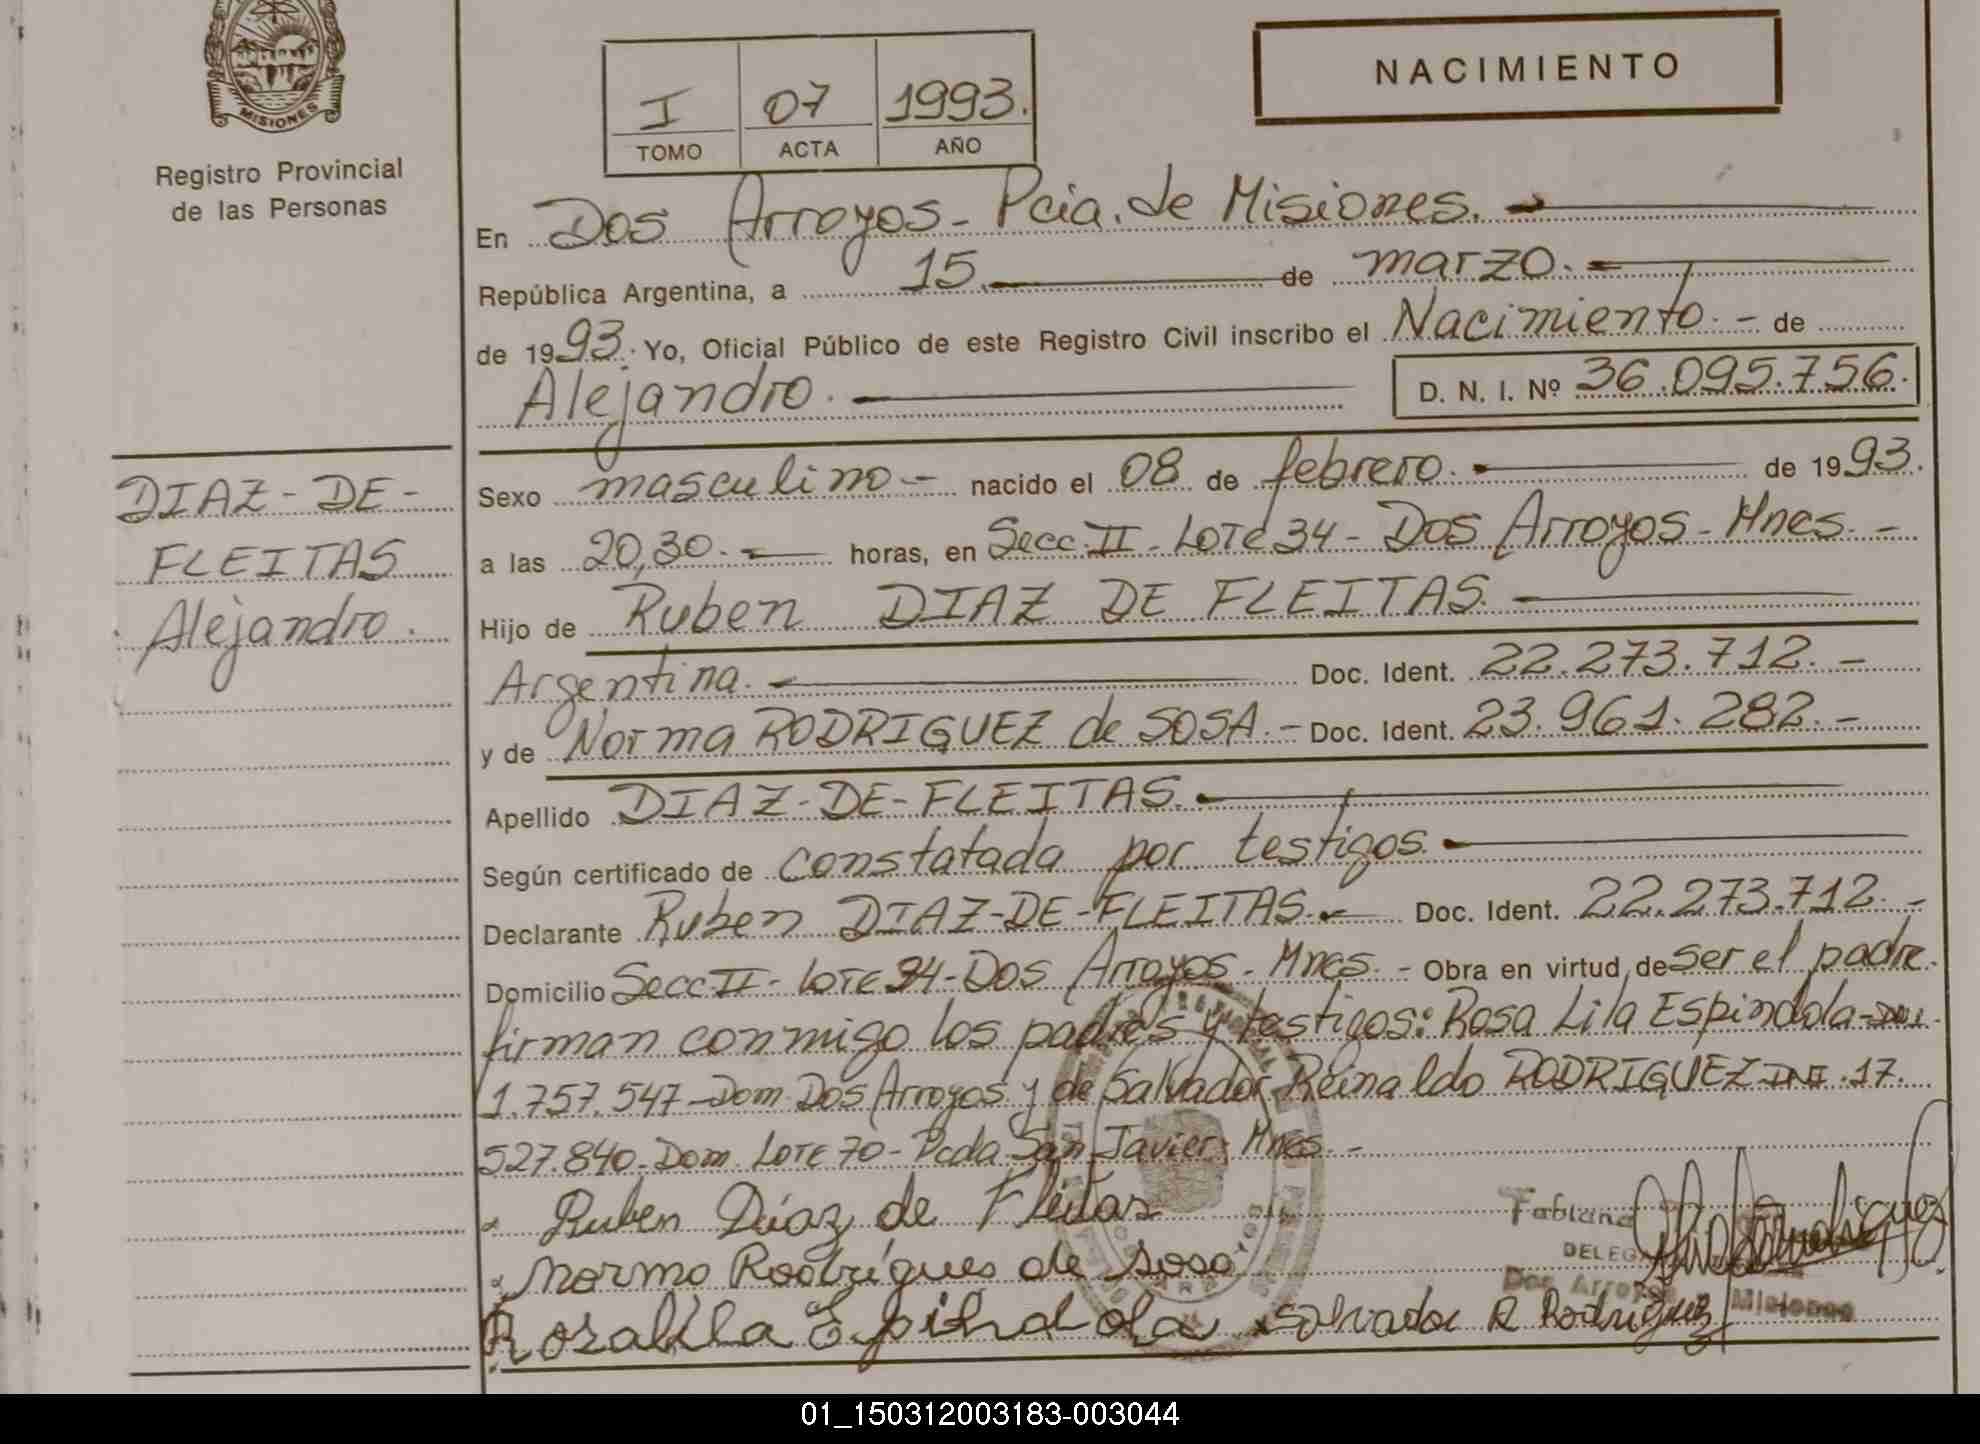 MISIONES
Registro Provincial
de las Personas
I 07 1993.
TOMO ACTA AÑO
NACIMIENTO
En Dos Arroyos - Pcia. de Misiones. -
República Argentina, a 15. de marzo. -
de 1993. Yo, Oficial Público de este Registro Civil inscribo el Nacimiento. - de
Alejandro. - D. N. I. Nº 36.095.756.
DIAZ-DE-
FLEITAS
Alejandro.
Sexo masculino - nacido el 08 de febrero. - de 1993.
a las 20,30. - horas, en Secc. II - LOTE 34 - Dos Arroyos - Mnes. -
Hijo de Ruben DIAZ DE FLEITAS. -
Argentina. - Doc. Ident. 22.273.712. -
y de Norma RODRIGUEZ de SOSA. - Doc. Ident. 23.961.282. -
Apellido DIAZ-DE-FLEITAS. -
Según certificado de constatada por testigos. -
Declarante Ruben DIAZ-DE-FLEITAS. - Doc. Ident. 22.273.712. -
Domicilio Secc II - LOTE 34 - Dos Arroyos - Mnes. - Obra en virtud de ser el padre.
firman conmigo los padres y testigos: Rosa Lila Espindola - DNI.
1.757.547 - Dom. Dos Arroyos y de Salvador Reinaldo RODRIGUEZ DNI. 17.
527.840 - Dom. LOTE 70 - Pcda San Javier - Mnes. -
Ruben Díaz de Fleitas
Norma Rodrígues de Sosa
Rosalila Espindola Salvador R Rodriguez
Fabiana
DELEG
Dos Arroyos Misiones
01_150312003183-003044